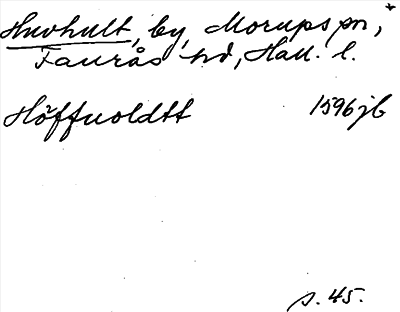 Huvhult, by, Morups sn,
Faurås hd, Hall. l.
Höffuoldtt 1596 jb
s. 45.